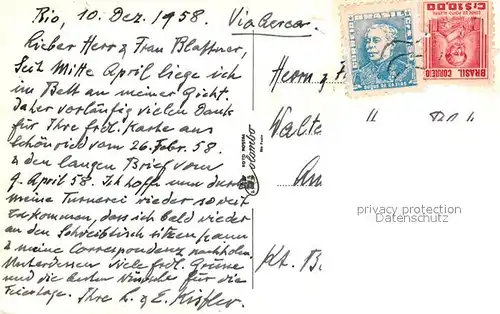 Rio, 10. Dez. 1958. Via Aerea.
Lieber Herr & Frau Blattner,
Seit Mitte April liege ich
im Bett an meiner Gicht.
Daher vorläufig vielen Dank
für Ihre frdl. Karte aus
Schönried vom 26. Febr. 58.
& den langen Brief vom
9. April 58. Ich hoffe nun durch
meine Turnerei wieder soweit
zu kommen, dass ich bald wieder
an den Schreibtisch sitzen kann
& meine Correspondenz nachholen.
Unterdessen viele frdl. Grüsse
und die besten Wünsche für die
Feiertage. Ihre L. & E. Kistler.
BRASIL
DUQUE DE CAXIAS
Cr$10,00
BRASIL CORREIO
Herrn & F
Walte
Am
Kt. B.
Colombo
privacy protection
Datenschutz